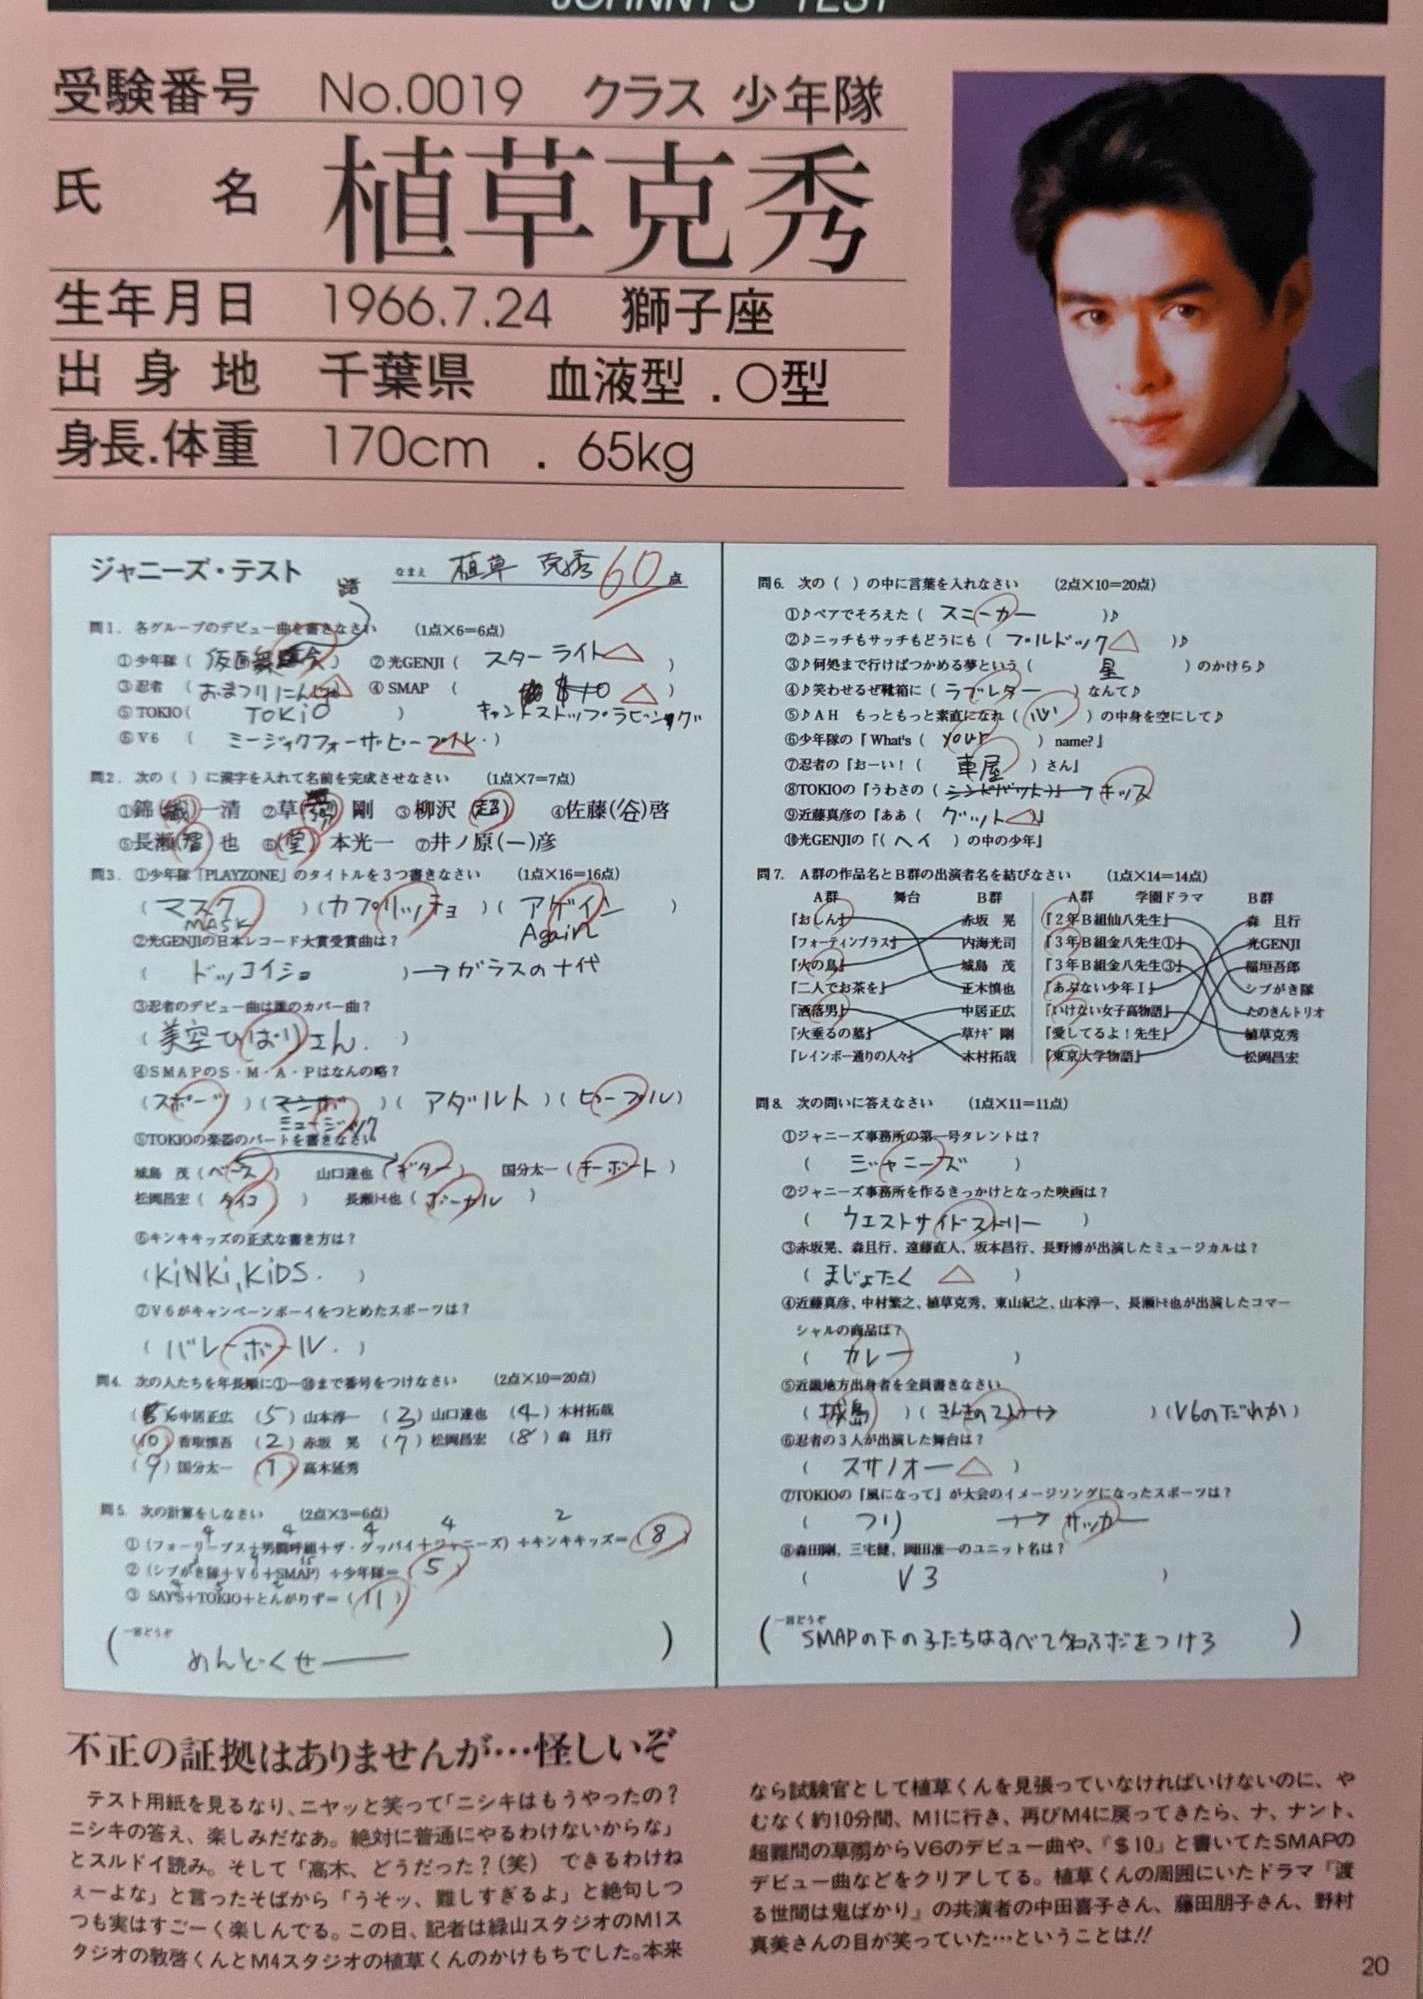 JOHNNY'S TEST
受験番号 No.0019 クラス 少年隊
氏名 植草克秀
生年月日 1966.7.24 獅子座
出身地 千葉県 血液型.O型
身長.体重 170cm.65kg
ジャニーズ・テスト なまえ 植草 克秀 60点
問1. 各グループのデビュー曲を書きなさい (1点×6=6点)
①少年隊(仮面舞踏会) ②光GENJI(スターライト△)
③忍者(おまつりにんじゃ△) ④SMAP($10 △)
キャントストップラビィング
⑤TOKIO(TOKIO)
⑥V6(ミージックフォーザピープル)
問2. 次の( )に漢字を入れて名前を完成させなさい (1点×7=7点)
①錦(織)一清 ②草(彅)剛 ③柳沢(超) ④佐藤(谷)啓
⑤長瀬(智)也 ⑥(堂)本光一 ⑦井ノ原(一)彦
問3. ①少年隊「PLAYZONE」のタイトルを3つ書きなさい (1点×16=16点)
(マスク MASK)(カプリッチョ)(アゲイン Again)
②光GENJIの日本レコード大賞受賞曲は?
(ドッコイショ)→ガラスの十代
③忍者のデビュー曲は誰のカバー曲?
(美空ひばりさん.)
④SMAPのS・M・A・Pはなんの略?
(スポーツ)(マンボ ミュージック)(アダルト)(ピープル)
⑤TOKIOの楽器のパートを書きなさい
城島 茂(ベース) 山口達也(ギター) 国分太一(キーボート)
松岡昌宏(タイコ) 長瀬トモ也(ボーカル)
⑥キンキキッズの正式な書き方は?
(KiNKi, KiDS.)
⑦V6がキャンペーンボーイをつとめたスポーツは?
(バレーボール.)
問4. 次の人たちを年長順に①〜⑩まで番号をつけなさい (2点×10=20点)
(6)中居正広 (5)山本淳一 (3)山口達也 (4)木村拓哉
(10)香取慎吾 (2)赤坂 晃 (7)松岡昌宏 (8)森 且行
(9)国分太一 (1)高木延秀
問5. 次の計算をしなさい (2点×3=6点)
4 4 4 4 2
①(フォーリーブス+男闘呼組+ザ・グッバイ+ジャニーズ)÷キンキキッズ=(8)
②(シブがき隊+V6+SMAP)÷少年隊=(5)
③ SAY'S+TOKIO+とんがりずー=(11)
一言どうぞ
(めんどくせー)
問6. 次の( )の中に言葉を入れなさい (2点×10=20点)
①♪ペアでそろえた(スニーカー)♪
②♪ニッチもサッチもどうにも(ブルドック△)♪
③♪何処まで行けばつかめる夢という(星)のかけら♪
④♪笑わせるぜ靴箱に(ラブレター)なんて♪
⑤♪AH もっともっと素直になれ(心)の中身を空にして♪
⑥少年隊の『What's(your)name?』
⑦忍者の『おーい!(車屋)さん』
⑧TOKIOの『うわさの(シンドバット→キッス
⑨近藤真彦の『ああ(グット△)』
⑩光GENJIの『(ヘイ)の中の少年』
問7. A群の作品名とB群の出演者名を結びなさい (1点×14=14点)
A群 舞台 B群 A群 学園ドラマ B群
『おしん』 赤坂 晃 『2年B組仙八先生』 森 且行
『フォーティンブラス』 内海光司 『3年B組金八先生①』 光GENJI
『火の鳥』 城島 茂 『3年B組金八先生③』 稲垣吾郎
『二人でお茶を』 正木慎也 『あぶない少年Ⅰ』 シブがき隊
『洒落男』 中居正広 『いけない女子高物語』 たのきんトリオ
『火垂るの墓』 草ナギ 剛 『愛してるよ!先生』 植草克秀
『レインボー通りの人々』 木村拓哉 『東京大学物語』 松岡昌宏
問8. 次の問いに答えなさい (1点×11=11点)
①ジャニーズ事務所の第一号タレントは?
(ジャニーズ)
②ジャニーズ事務所を作るきっかけとなった映画は?
(ウエストサイドストーリー)
③赤坂晃、森且行、遠藤直人、坂本昌行、長野博が出演したミュージカルは?
(まじょたく △)
④近藤真彦、中村繁之、植草克秀、東山紀之、山本淳一、長瀬トモ也が出演したコマー
シャルの商品は?
(カレー)
⑤近畿地方出身者を全員書きなさい
(城島)(きんきの2人)(V6のだれか)
⑥忍者の3人が出演した舞台は?
(スサノオー△)
⑦TOKIOの『風になって』が大会のイメージソングになったスポーツは?
(つり → サッカー
⑧森田剛、三宅健、岡田准一のユニット名は?
(V3)
一言どうぞ
(SMAPの下の子たちはすべて名ふだをつけろ)
不正の証拠はありませんが…怪しいぞ
テスト用紙を見るなり、ニヤッと笑って「ニシキはもうやったの?
ニシキの答え、楽しみだなあ。絶対に普通にやるわけないからな」
とスルドイ読み。そして「高木、どうだった?(笑) できるわけね
ぇーよな」と言ったそばから「うそッ、難しすぎるよ」と絶句しつ
つも実はすごーく楽しんでる。この日、記者は緑山スタジオのM1ス
タジオの敦啓くんとM4スタジオの植草くんのかけもちでした。本来
なら試験官として植草くんを見張っていなければいけないのに、や
むなく約10分間、M1に行き、再びM4に戻ってきたら、ナ、ナント、
超難問の草彅からV6のデビュー曲や、『$10』と書いてたSMAPの
デビュー曲などをクリアしてる。植草くんの周囲にいたドラマ『渡
る世間は鬼ばかり』の共演者の中田喜子さん、藤田朋子さん、野村
真美さんの目が笑っていた…ということは!!
20